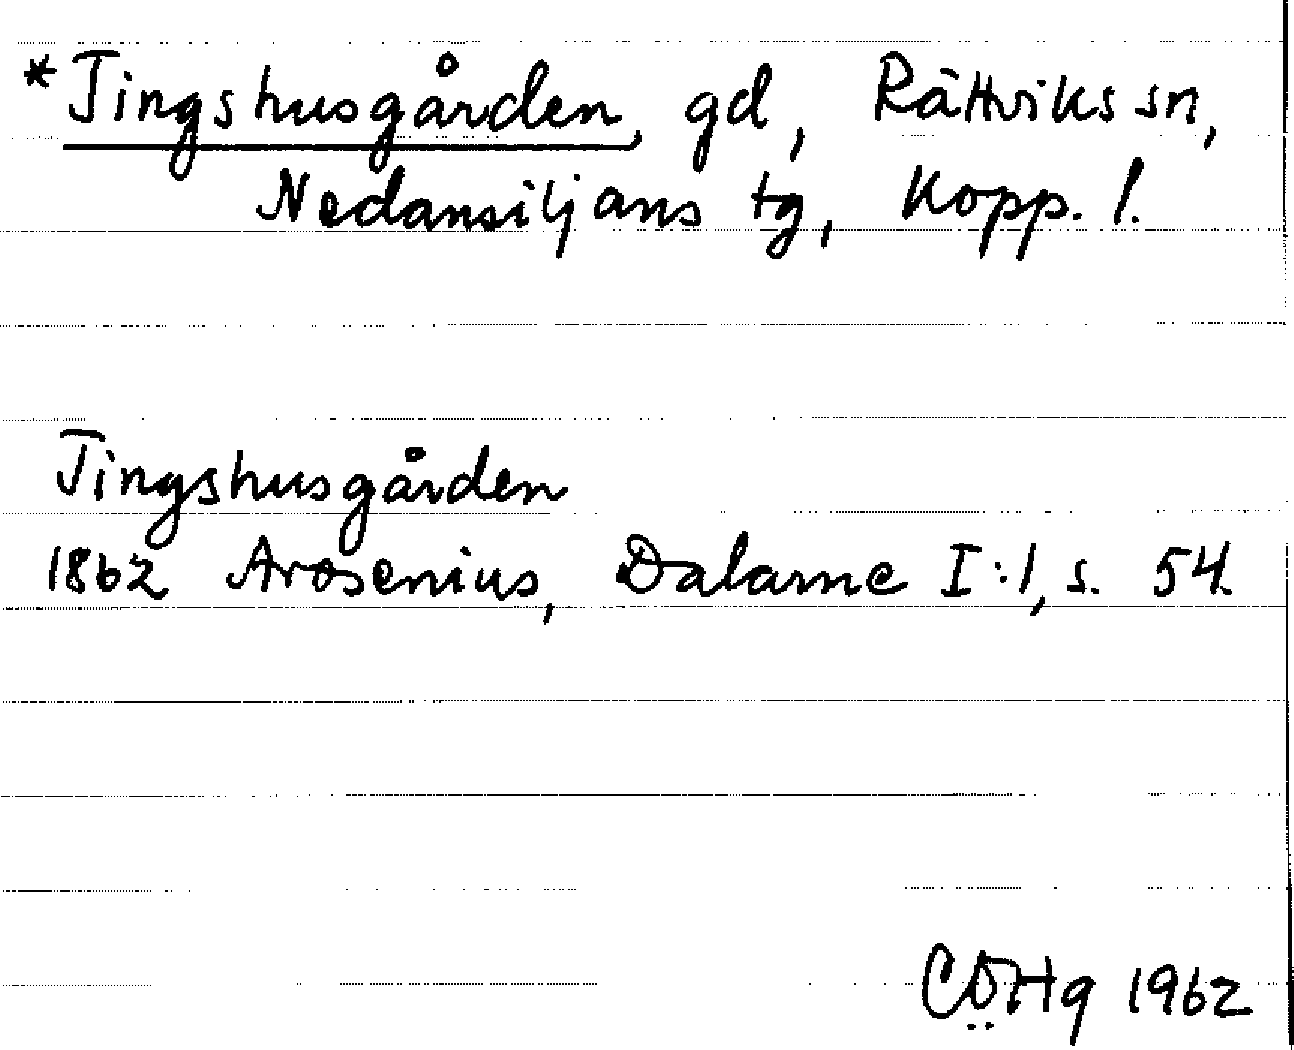 *Tingshusgården, gd, Rättviks sn,
Nedansiljans tg, Kopp. l.
Tingshusgården
1862 Arosenius, Dalarne I:1, s. 54.
1962